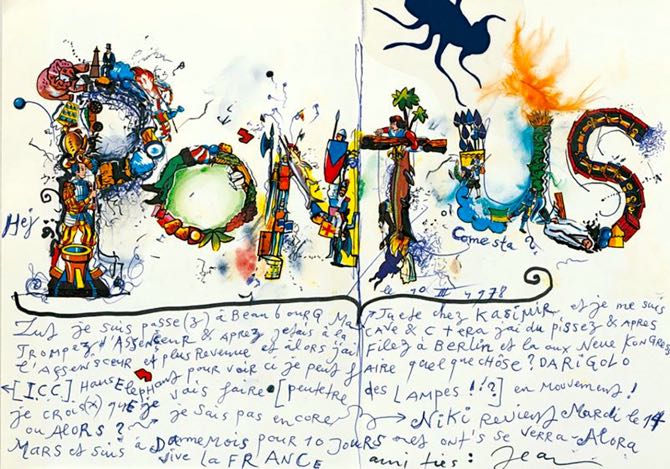 Hej
PONTUS
Come sta?
le 10 III 1978
Zut je suis passe(z) à Beaubourg Ma
Trompez d'Assenceur & aprez jetais à la
l'Assensceur et plus Revenue et alors jai
[I.C.C.] Hans Elephant pour voir ci je peut f
je crois(x) que je vais faire [peutetre
ou ALORS? je sais pas encore
Mars et suis à
chez KASIMIR et je me suis
CAVE & C + era jai du pissez & apres
Filez à Berlin et la aux Neue Kongres
aire quelque chôse? DARIGOLO
des LAMPES !!?] en mouvement!
Niki Revient Mardi le 14
Dorme Mois pour 10 JOURS ont's se verra - Alora
Vive la FRANCE amitiés: Jean